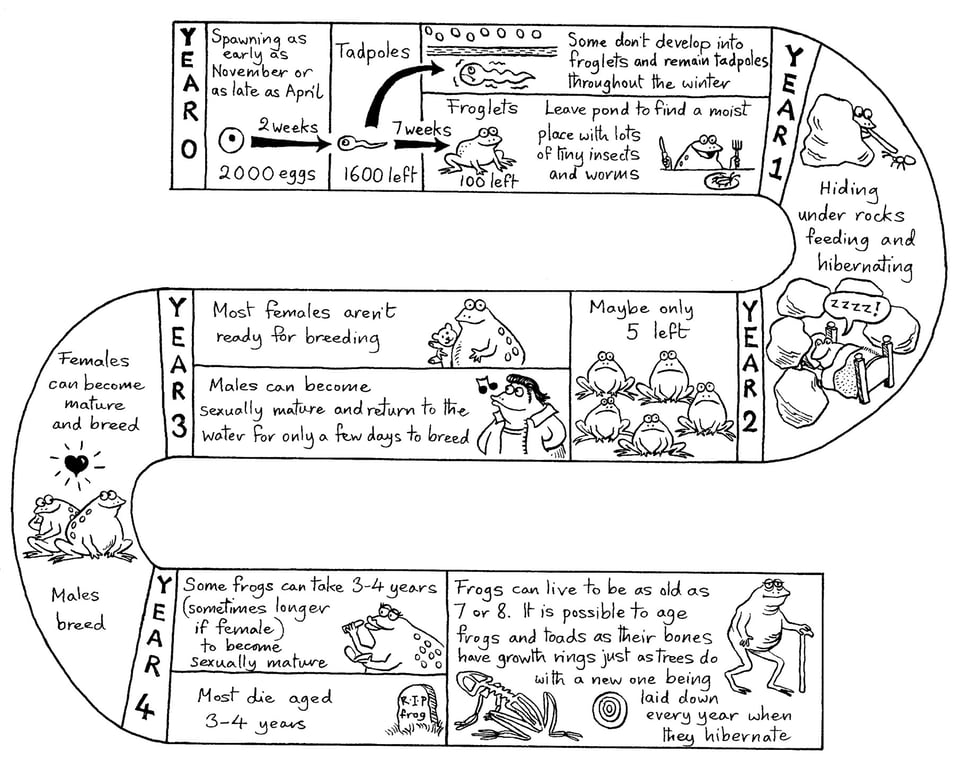 YEAR 0
Spawning as
early as
November or
as late as April
2 weeks
2000 eggs
Tadpoles
1600 left
7 weeks
Some don't develop into
froglets and remain tadpoles
throughout the winter
Froglets
100 left
Leave pond to find a moist
place with lots
of tiny insects
and worms
YEAR 1
Hiding
under rocks
feeding and
hibernating
zzzz!
YEAR 2
Maybe only
5 left
Most females aren't
ready for breeding
Males can become
sexually mature and return to the
water for only a few days to breed
YEAR 3
Females
can become
mature
and breed
Males
breed
YEAR 4
Some frogs can take 3-4 years
(sometimes longer
if female)
to become
sexually mature
Most die aged
3-4 years
R.I.P
frog
Frogs can live to be as old as
7 or 8. It is possible to age
frogs and toads as their bones
have growth rings just as trees do
with a new one being
laid down
every year when
they hibernate